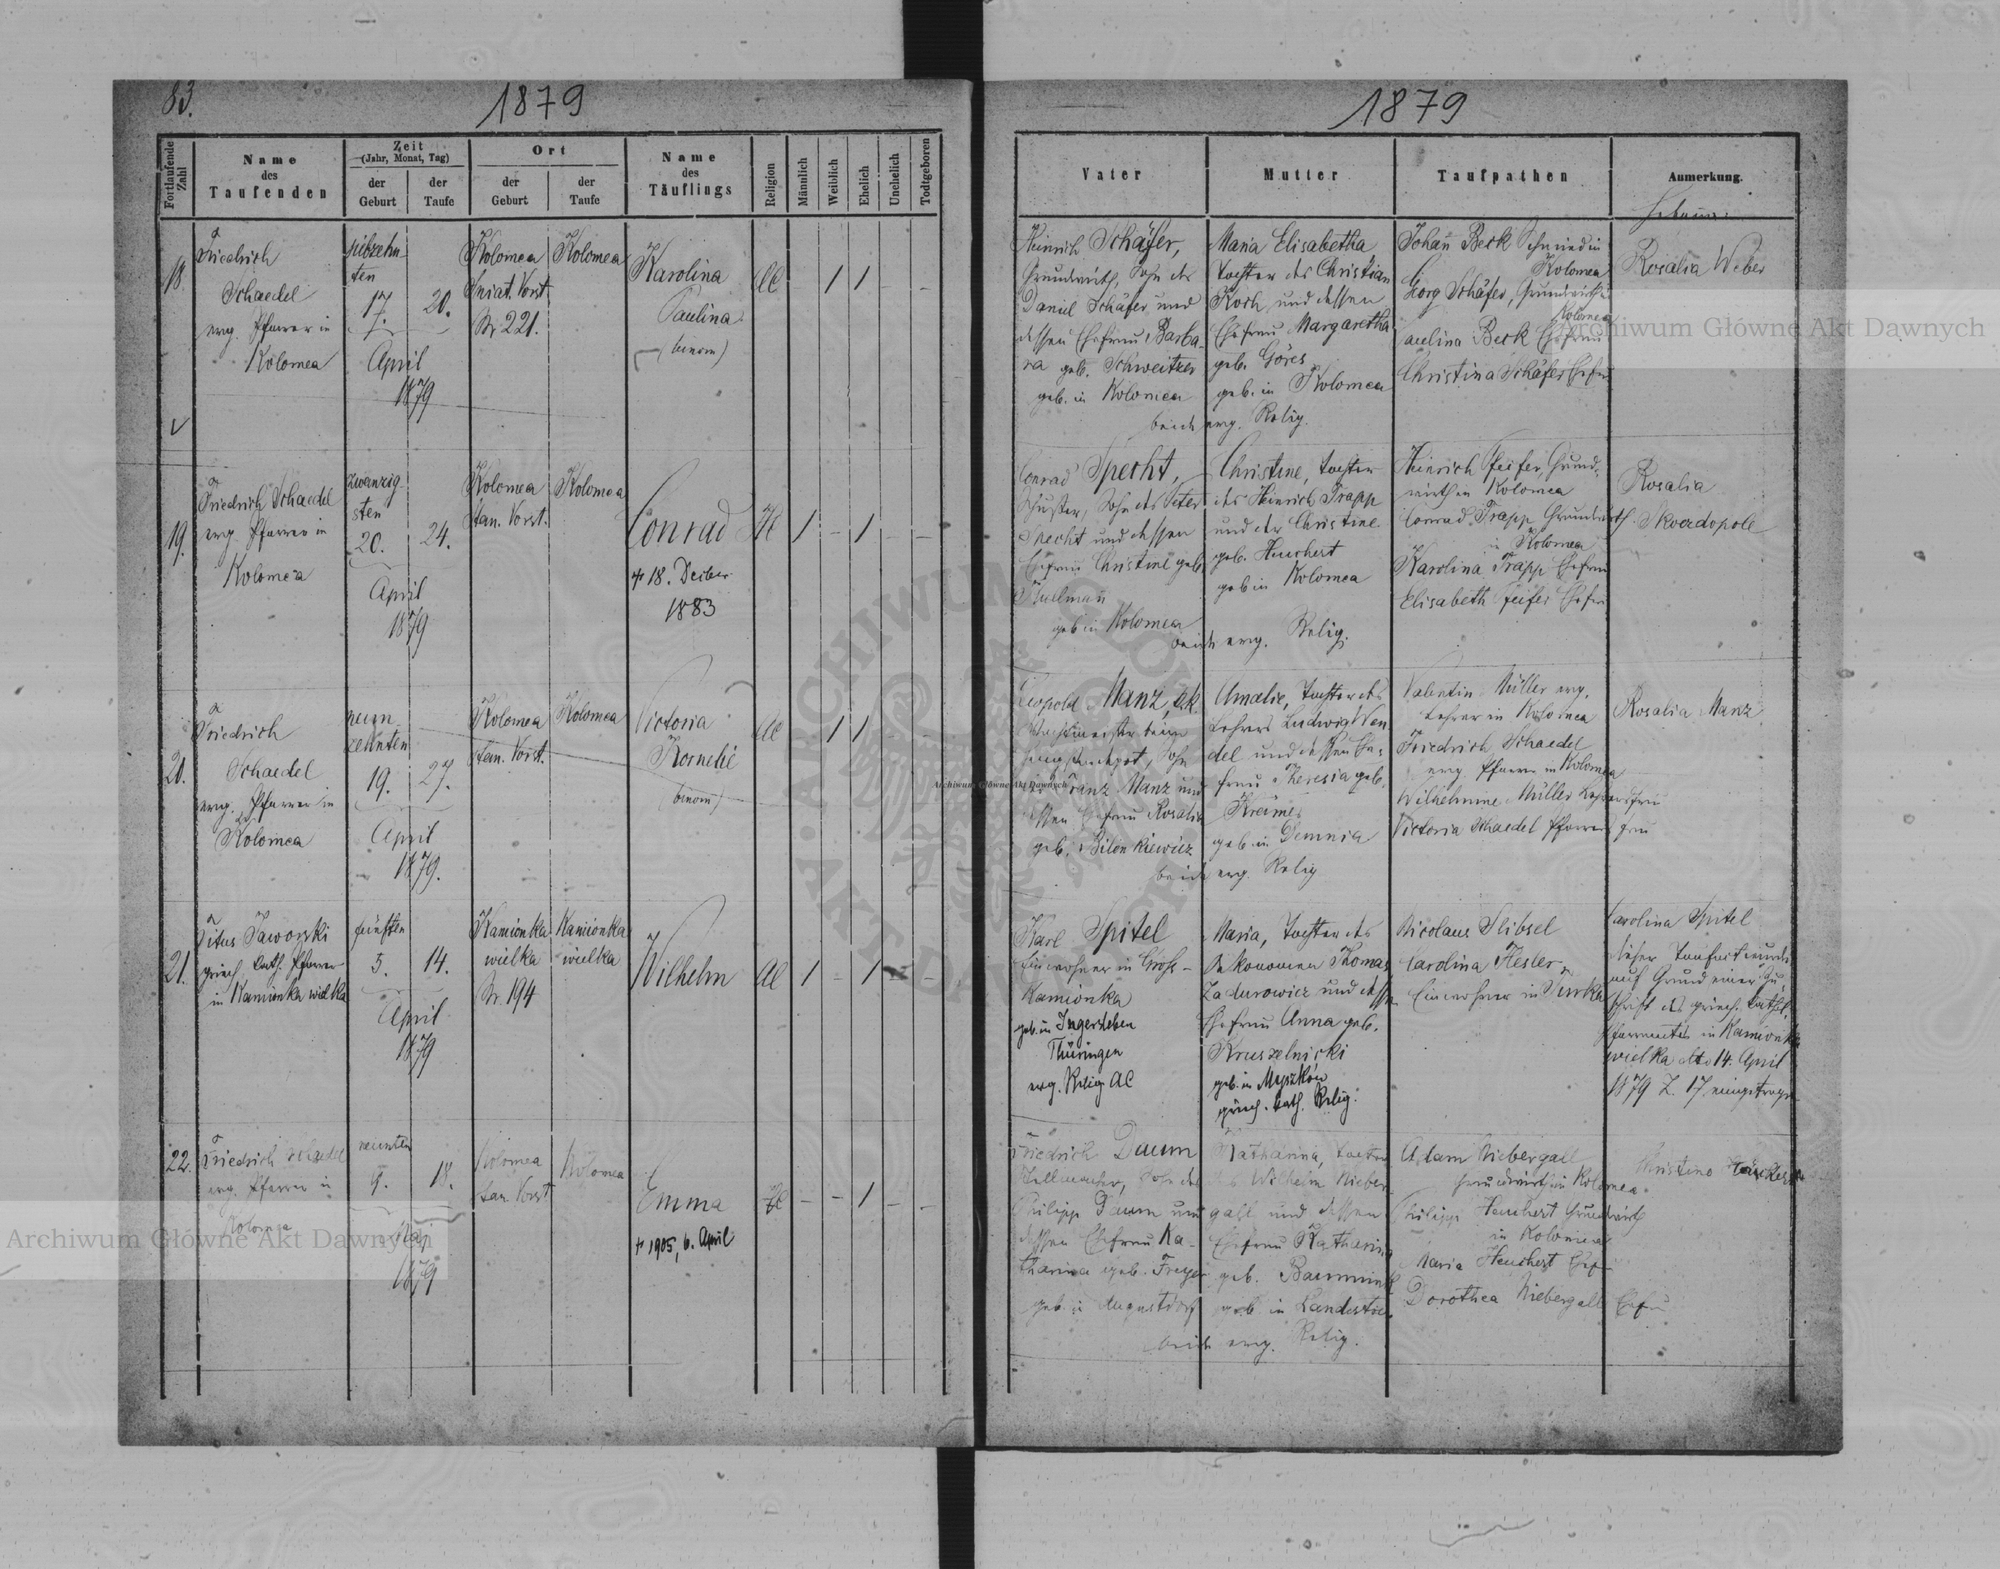 83.
1879
Fortlaufende Zahl
Name
des
Taufenden
Zeit
(Jahr, Monat, Tag)
der
Geburt
der
Taufe
Ort
der
Geburt
der
Taufe
Name
des
Täuflings
Religion
Männlich
Weiblich
Ehelich
Unehelich
Todtgeboren
18.
Friedrich
Schaedel
evg. Pfarrer in
Kolomea
siebzehn
ten
17.
20.
April
1879
Kolomea
Sniat. Vorst
Nr 221.
Kolomea
Karolina
Paulina
(binom)
AC
- 1 1 - -
19.
Friedrich Schaedel
evg. Pfarrer in
Kolomea
zwanzig
sten
20.
24.
April
1879
Kolomea
Stan. Vorst.
Kolomea
Conrad
+ 18. Dezber
1883
HC
1 - 1 - -
20.
Friedrich
Schaedel
evg. Pfarrer in
Kolomea
neun
zehnten
19.
27.
April
1879.
Kolomea
Stan. Vorst.
Kolomea
Victoria
Kornelie
(binom)
AC
1 1
21.
Titus Jaworski
griech. kath. Pfarrer
in Kamionka wielka
fünften
5.
14.
April
1879
Kamionka
wielka
Nr. 194
Kamionka
wielka
Wilhelm
AC
1 - 1 - -
22.
Friedrich Schaedel
evg. Pfarrer in
Kolomea
neunten
9.
18.
Mai
1879
Kolomea
Stan. Vorst
Kolomea
Emma
+ 1905, 6. April
HC
- - 1 - -
1879
Vater
Mutter
Taufpathen
Anmerkung.
Hebame:
Heinrich Schäfer,
Grundwirth, Sohn des
Daniel Schäfer und
dessen Ehefrau Barba-
ra geb. Schweitzer
geb. in Kolomea
Maria Elisabetha
Tochter des Christian
Koch und dessen
Ehefrau Margaretha
geb. Göres
geb. in Kolomea
beide evg. Relig.
Johan Beck Schmied in
Kolomea
Georg Schäfer, Grundwirth in
Kolomea
Paulina Beck Ehefrau
Christina Schäfer Ehefrau
Rosalia Weber
Conrad Specht,
Schuster, Sohn des Peter
Specht und dessen
Ehefrau Christine geb.
geb in Kolomea
Christine, Tochter
des Heinrich Trapp
und der Christine
geb. Heuchert
geb in Kolomea
beide evg. Relig.
Heinrich Pfeifer Grund-
wirth in Kolomea
Conrad Trapp Grundwirth
in Kolomea
Karolina Trapp Ehefrau
Elisabeth Pfeifer Ehefrau
Rosalia
Skwedopole
Leopold Manz, k.k.
Wachtmeister beim
Hengstendepot, Sohn
des Franz Manz und
dessen Ehefrau Rosalia
geb. Bilonkiewicz
Amalie, Tochter des
Lehrers Ludwig Wen
del und dessen Ehe-
frau Theresia geb.
Kreimes
geb in Demnia
beide evg. Relig
Valentin Müller evg.
Lehrer in Kolomea
Friedrich Schaedel
evg. Pfarrer in Kolomea
Wilhelmine Müller Lehrersfrau
Victoria Schaedel Pfarrersfrau
Rosalia Manz
Karl Spitel
Einwohner in Gross-
Kamionka
geb. in Ingersleben
Thüringen
evg. Relig AC
Maria, Tochter des
Oekonomen Thomas
Zadurowicz und dessen
Ehefrau Anna geb.
Kruszelnicki
geb. in Myszków
griech. kath. Relig.
Nicolaus Slibsel
Carolina Hesler
Einwohner in Turka
Carolina Spitel
dieser Taufact wurde
auf Grund einer Zu-
schrift des griech. kathol.
Pfarramtes in Kamionka
wielka dto 14. April
1879 Z. 17 eingetragen
Friedrich Daum
Sohn des
Philipp Daum und
dessen Ehefrau Ka-
tharina geb. Freyer
geb. in Augustdorf
Katharina, Tochter
des Wilhelm Nieber
gall und dessen
Ehefrau Katharina
geb.
geb. in Landestreu
beide evg. Relig.
Adam Niebergall
Grundwirth in Kolomea
Philipp Heuchert Grundwirth
in Kolomea
Maria Heuchert Ehefrau
Dorothea Niebergall Ehefrau
Christine
Archiwum Główne Akt Dawnych
Archiwum Główne Akt Dawnych
Archiwum Główne Akt Dawnych